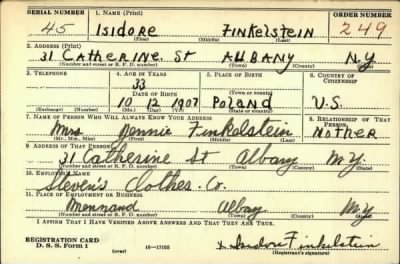 SERIAL NUMBER 1. NAME (Print) ORDER NUMBER
45 Isidore Finkelstein 249
(First) (Middle) (Last)
2. ADDRESS (Print)
31 Catherine St Albany N.Y.
(Number and street or R. F. D. number) (Town) (County) (State)
3. TELEPHONE 4. AGE IN YEARS 5. PLACE OF BIRTH 6. COUNTRY OF CITIZENSHIP
33
DATE OF BIRTH Poland U.S.
10 12 1907
(Exchange) (Number) (Mo.) (Day) (Yr.) (State or country)
7. NAME OF PERSON WHO WILL ALWAYS KNOW YOUR ADDRESS 8. RELATIONSHIP OF THAT PERSON
Mrs Jennie Finkelstein Mother
(Mr., Mrs., Miss) (First) (Middle) (Last)
9. ADDRESS OF THAT PERSON
31 Catherine St Albany N.Y.
(Number and street or R. F. D. number) (Town) (County) (State)
10. EMPLOYER'S NAME
Stevens Clothes Co.
11. PLACE OF EMPLOYMENT OR BUSINESS
Mennand Albay N.Y
(Number and street or R. F. D. number) (Town) (County) (State)
I AFFIRM THAT I HAVE VERIFIED ABOVE ANSWERS AND THAT THEY ARE TRUE.
REGISTRATION CARD x Isidore Finkelstein
D. S. S. Form 1 (over) 16—17105 (Registrant's signature)